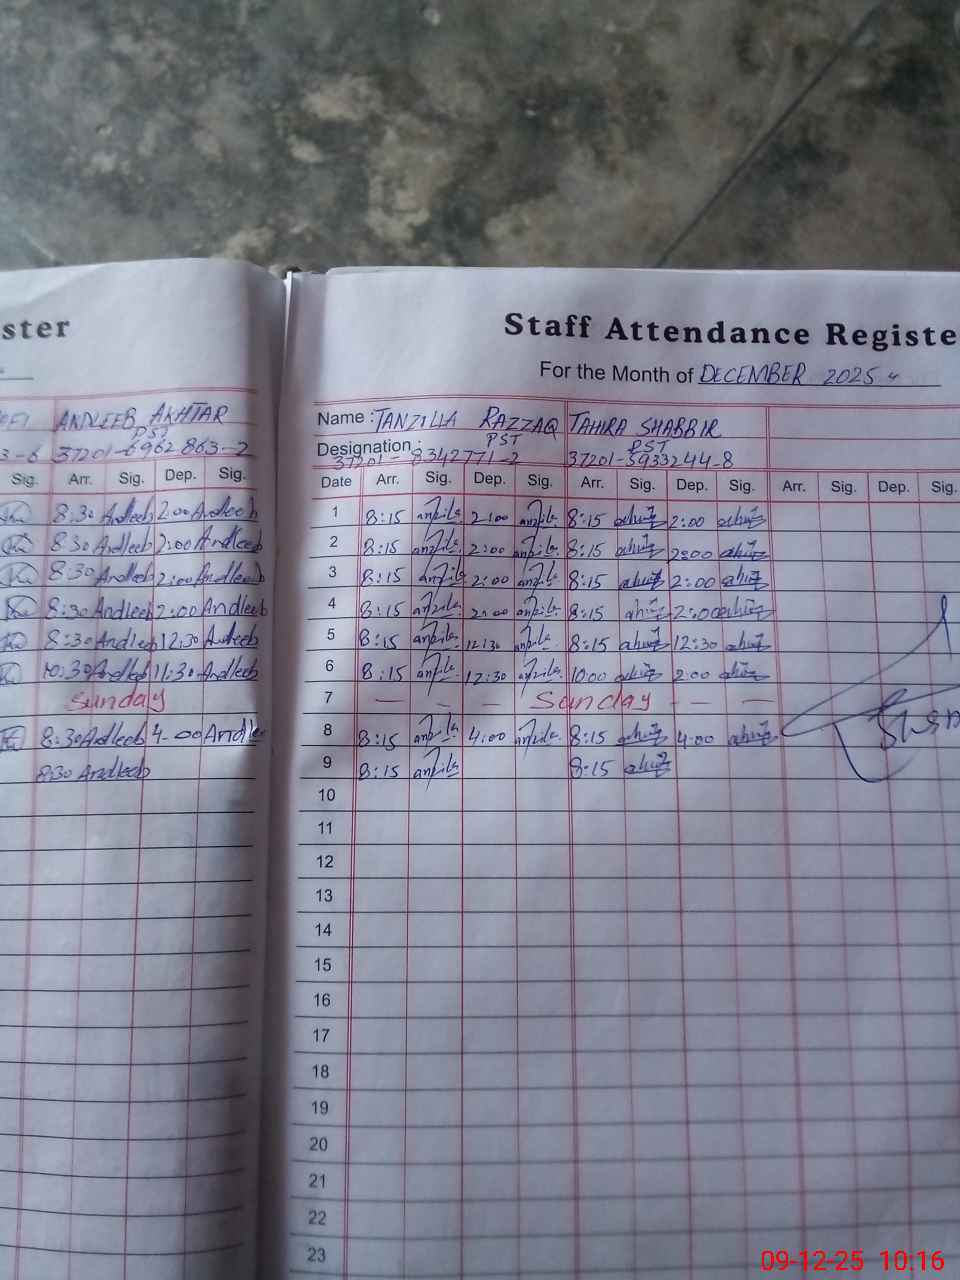 ster
Staff Attendance Registe
For the Month of DECEMBER 2025
ANDLEEB AKHTAR
PST
3-6 37201-6962863-2
Sig. Arr. Sig. Dep. Sig.
8:30 Andleeb 2:00 Andleeb
8:30 Andleeb 2:00 Andleeb
8:30 Andleeb 2:00 Andleeb
8:30 Andleeb 2:00 Andleeb
8:30 Andleeb 12:30 Andleeb
10:30 Andleeb 11:30 Andleeb
Sunday
8:30 Andleeb 4-00 Andle
8:30 Andleeb
Name : TANZILLA RAZZAQ TAHIRA SHABBIR
Designation : PST PST
37201-8342771-2 37201-5933244-8
Date Arr. Sig. Dep. Sig. Arr. Sig. Dep. Sig. Arr. Sig. Dep. Sig.
1 8:15 2:00 8:15 2:00
2 8:15 2:00 8:15 2:00
3 8:15 2:00 8:15 2:00
4 8:15 2:00 8:15 2:00
5 8:15 12:30 8:15 12:30
6 8:15 12:30 10:00 2:00
7 — — — Sunday — — —
8 8:15 4:00 8:15 4:00
9 8:15 8:15
10
11
12
13
14
15
16
17
18
19
20
21
22
23
09-12-25 10:16